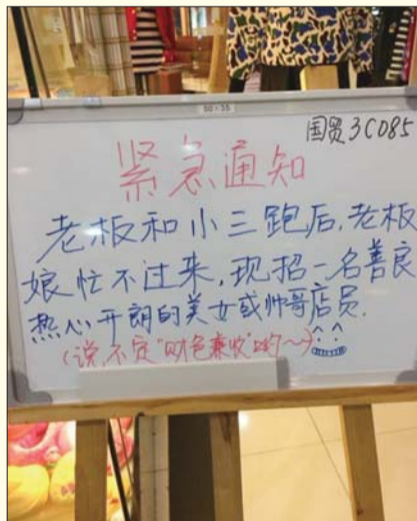 50×35
国贸3C085
紧急通知
老板和小三跑后,老板
娘忙不过来,现招一名善良
热心开朗的美女或帅哥店员.
(说不定“财色兼收”哟~)